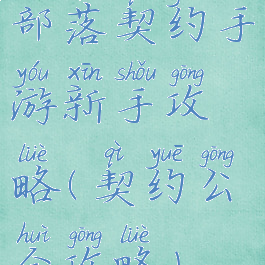 部落契约手
yóu xīn shǒu gòng
游新手攻
lüè qì yuē gōng
略(契约公
huì gòng lüè
会攻略)